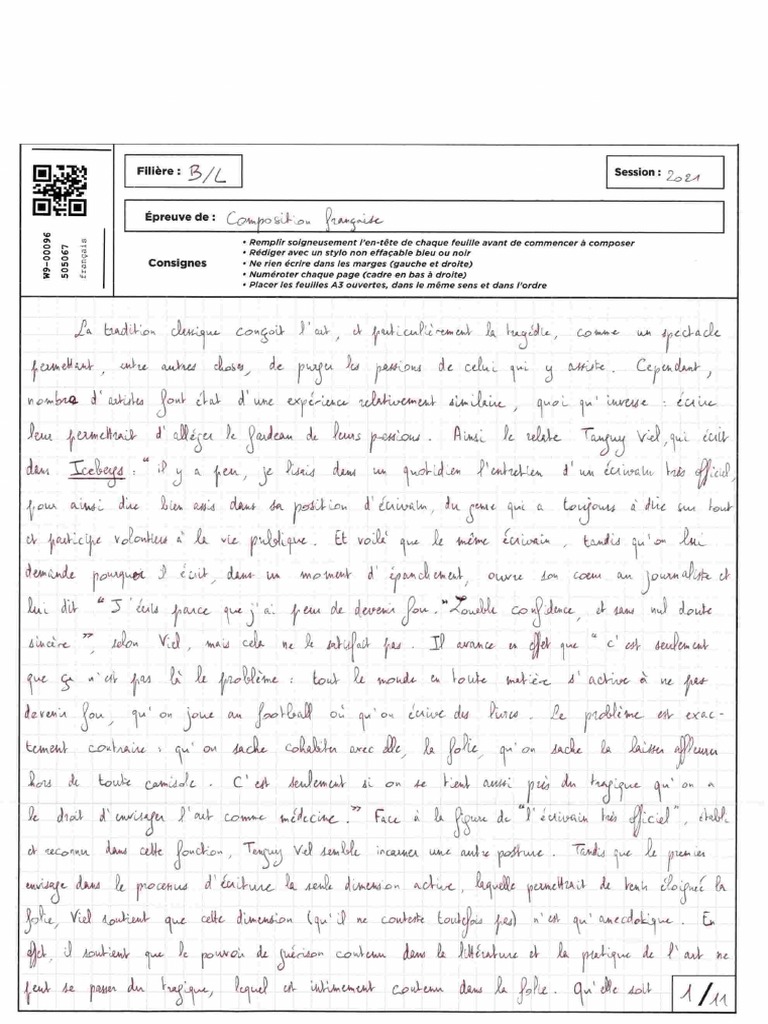 Filière : B/L
Session : 2021
Épreuve de : Composition française
Consignes
• Remplir soigneusement l'en-tête de chaque feuille avant de commencer à composer
• Rédiger avec un stylo non effaçable bleu ou noir
• Ne rien écrire dans les marges (gauche et droite)
• Numéroter chaque page (cadre en bas à droite)
• Placer les feuilles A3 ouvertes, dans le même sens et dans l'ordre
W9-00096
505067
français
La tradition classique conçoit l'art, et particulièrement la tragédie, comme un spectacle
permettant, entre autres choses, de purger les passions de celui qui y assiste. Cependant,
nombre d'artistes font état d'une expérience relativement similaire, quoi qu'inverse : écrire
leur permettrait d'alléger le fardeau de leurs passions. Ainsi le relate Tanguy Viel, qui écrit
dans Icebergs : "il y a peu, je lisais dans un quotidien l'entretien d'un écrivain très officiel,
pour ainsi dire bien assis dans sa position d'écrivain, du genre qui a toujours à dire sur tout
et participe volontiers à la vie publique. Et voilà que le même écrivain, tandis qu'on lui
demande pourquoi il écrit, dans un moment d'épanchement, ouvre son coeur au journaliste et
lui dit "J'écris parce que j'ai peur de devenir fou." Louable confidence, et sans nul doute
sincère", selon Viel, mais cela ne le satisfait pas. Il avance en effet que "c'est seulement
que ça n'est pas là le problème : tout le monde en toute matière s'active à ne pas
devenir fou, qu'on joue au football où qu'on écrive des livres. Le problème est exac-
tement contraire : qu'on sache cohabiter avec elle, la folie, qu'on sache la laisser affleurer
hors de toute camisole. C'est seulement si on se tient aussi près du tragique qu'on a
le droit d'envisager l'art comme médecine." Face à la figure de "l'écrivain très officiel", établi
et reconnu dans cette fonction, Tanguy Viel semble incarner une autre posture. Tandis que le premier
envisage dans le processus d'écriture la seule dimension active, laquelle permettrait de tenir éloignée la
folie, Viel soutient que cette dimension (qu'il ne conteste toutefois pas) n'est qu'anecdotique. En
effet, il soutient que le pouvoir de guérison contenu dans la littérature et la pratique de l'art ne
peut se passer du tragique, lequel est intimement contenu dans la folie. Qu'elle soit
1/11